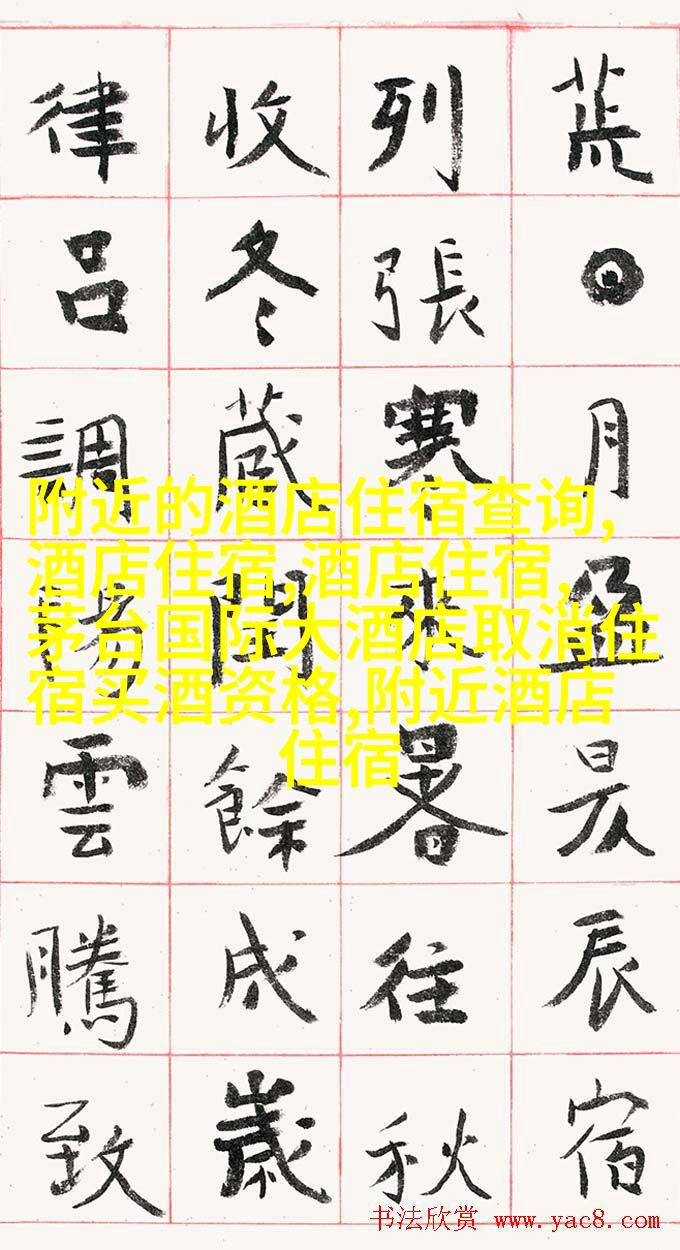 荒日月盈昃辰宿
列張寒来暑往秋
收冬藏閏餘成歲
律吕調陽雲騰致
附近的酒店住宿查询,
酒店住宿,酒店住宿,
茅台国际大酒店取消住
宿买酒资格,附近酒店
住宿
书法欣赏 www.yac8.com